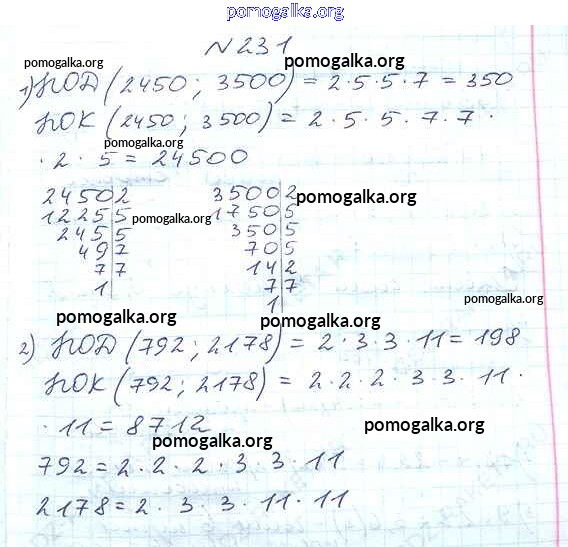 pomogalka.org
N 231
pomogalka.org pomogalka.org
1) НОД (2450; 3500) = 2·5·5·7 = 350
НОК (2450; 3500) = 2·5·5·7·7·
pomogalka.org
·2·5 = 24500
2450|2 3500|2 pomogalka.org
1225|5 pomogalka.org 1750|5
245|5 350|5
49|7 70|5
7|7 14|2
1| 7|7
1
pomogalka.org
pomogalka.org pomogalka.org
2) НОД (792; 2178) = 2·3·3·11 = 198
НОК (792; 2178) = 2·2·2·3·3·11·
·11 = 8712 pomogalka.org
pomogalka.org
792 = 2·2·2·3·3·11
2178 = 2·3·3·11·11